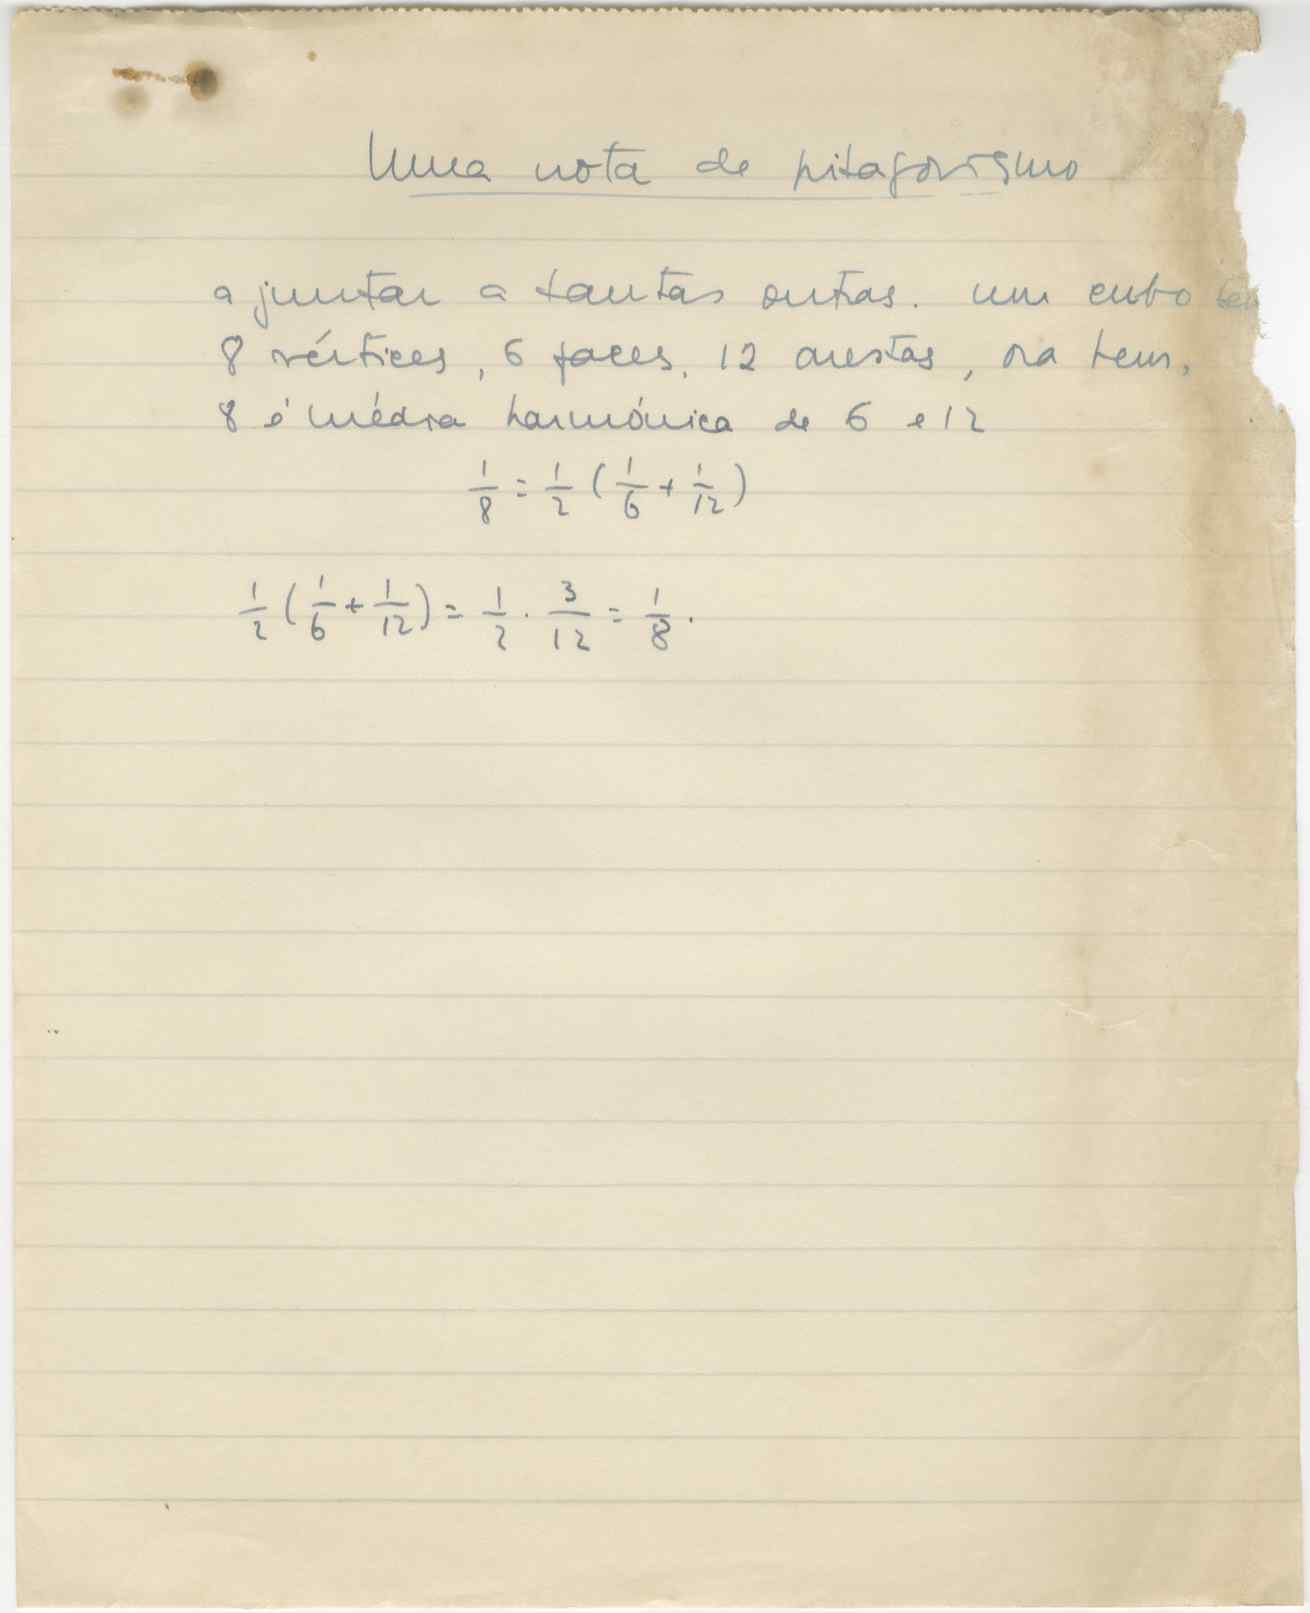 Uma nota de pitagorismo
a juntar a tantas outras. Um cubo tem
8 vértices, 6 faces, 12 arestas, ora bem,
8 é média harmónica de 6 e 12
1/8 = 1/2 (1/6 + 1/12)
1/2 (1/6 + 1/12) = 1/2 · 3/12 = 1/8.